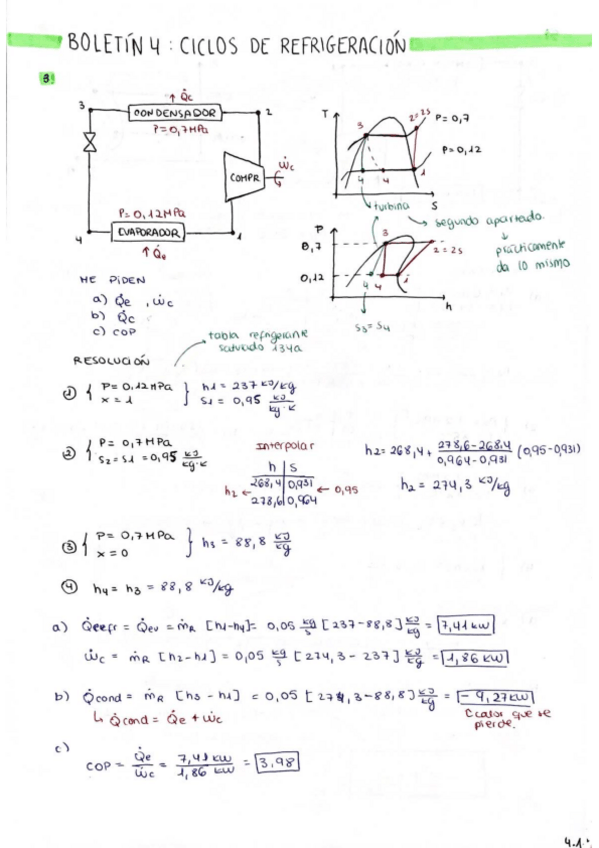 BOLETÍN 4 : CICLOS DE REFRIGERACIÓN
3
Q̇c
CONDENSADOR
P=0,7MPa
3
2
COMPR
Ẇc
P=0,12MPa
EVAPORADOR
4
1
Q̇e
T
3
2=2s
P=0,7
P=0,12
4
4
1
S
turbina
segundo apartado
prácticamente
da lo mismo
P
0,7
3
2=2s
0,12
4
4
1
h
s3=s4
ME PIDEN
a) Q̇e , Ẇc
b) Q̇c
c) COP
RESOLUCIÓN
tabla refrigerante
saturado 134a
① P=0,12MPa
x=1
h1 = 237 KJ/kg
s1 = 0,95 KJ/kg·K
② P=0,7MPa
s2=s1=0,95 KJ/kg·K
Interpolar
h s
268,4 0,931
h2 ← ← 0,95
278,6 0,964
h2=268,4+ 278,6-268,4/0,964-0,931 (0,95-0,931)
h2 = 274,3 KJ/kg
③ P=0,7MPa
x=0
h3 = 88,8 KJ/kg
④ h4 = h3 = 88,8 KJ/kg
a) Q̇refr = Q̇ev = ṁR [h1-h4]= 0,05 kg/s [237-88,8] KJ/kg = 7,41 kW
Ẇc = ṁR [h2-h1] = 0,05 kg/s [274,3-237] KJ/kg = 1,86 KW
b) Q̇cond = ṁR [h3-h1] = 0,05 [274,3-88,8] KJ/kg = -9,27KW
↳ Q̇cond = Q̇e + Ẇc
calor que se
pierde.
c) COP = Q̇e/Ẇc = 7,41 KW/1,86 KW = 3,98